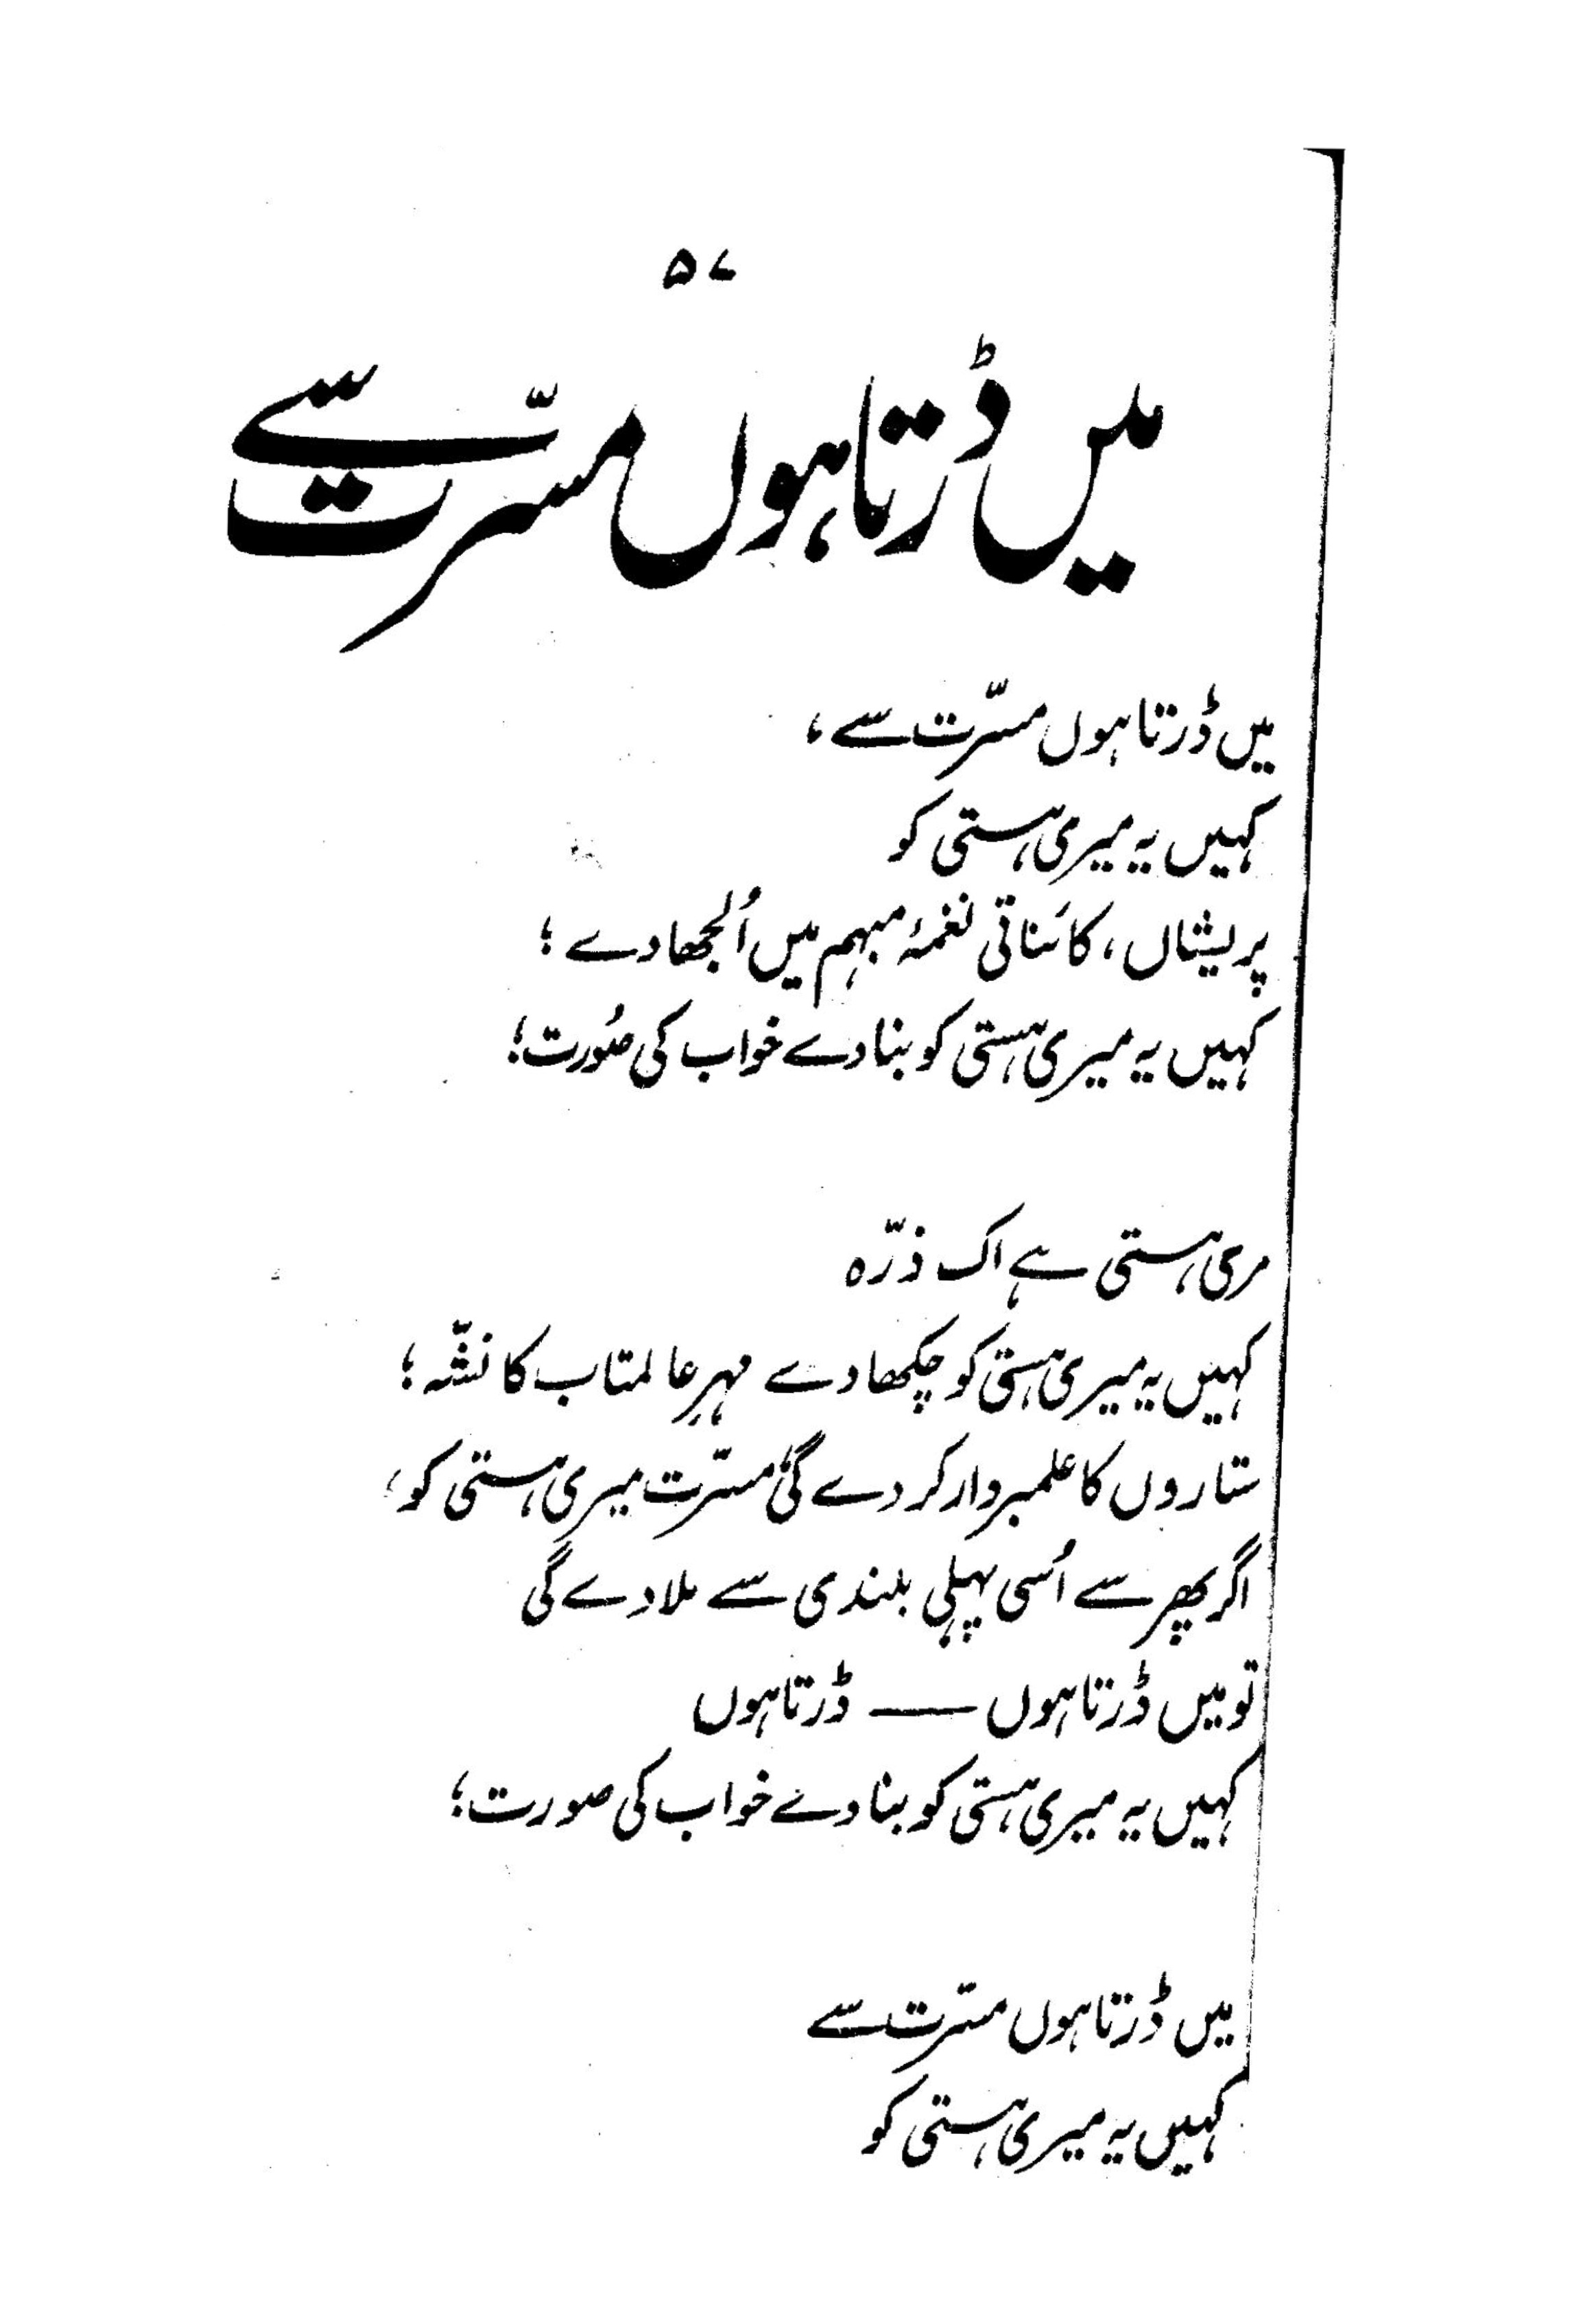 ۵۷
میں ڈرتا ہوں مسرّت سے
میں ڈرتا ہوں مسرّت سے،
کہیں یہ میری ہستی کو
پریشاں، کائناتی نغمۂ مبہم میں اُلجھا دے؛
کہیں یہ میری ہستی کو بنا دے خواب کی صُورت؛
مری ہستی ہے اک ذرّہ
کہیں یہ میری ہستی کو چکھا دے مہرِ عالمتاب کا نشّہ؛
ستاروں کا علمبردار کر دے گی مسرّت میری ہستی کو،
اگر پھر سے اُسی پہلی بلندی سے ملا دے گی
تو میں ڈرتا ہوں — ڈرتا ہوں
کہیں یہ میری ہستی کو بنا دے خواب کی صورت؛
میں ڈرتا ہوں مسرّت سے
کہیں یہ میری ہستی کو